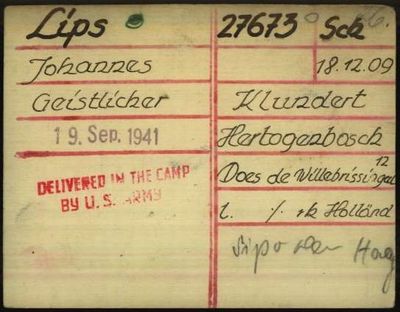 Lips 27673 Sch
Johannes 18.12.09
Geistlicher Klundert
19. Sep. 1941 Hertogenbosch
12
Does de Willebrissingel
DELIVERED IN THE CAMP
BY U.S. ARMY
l. ·/. rk Holländ
Sipo Den Haag